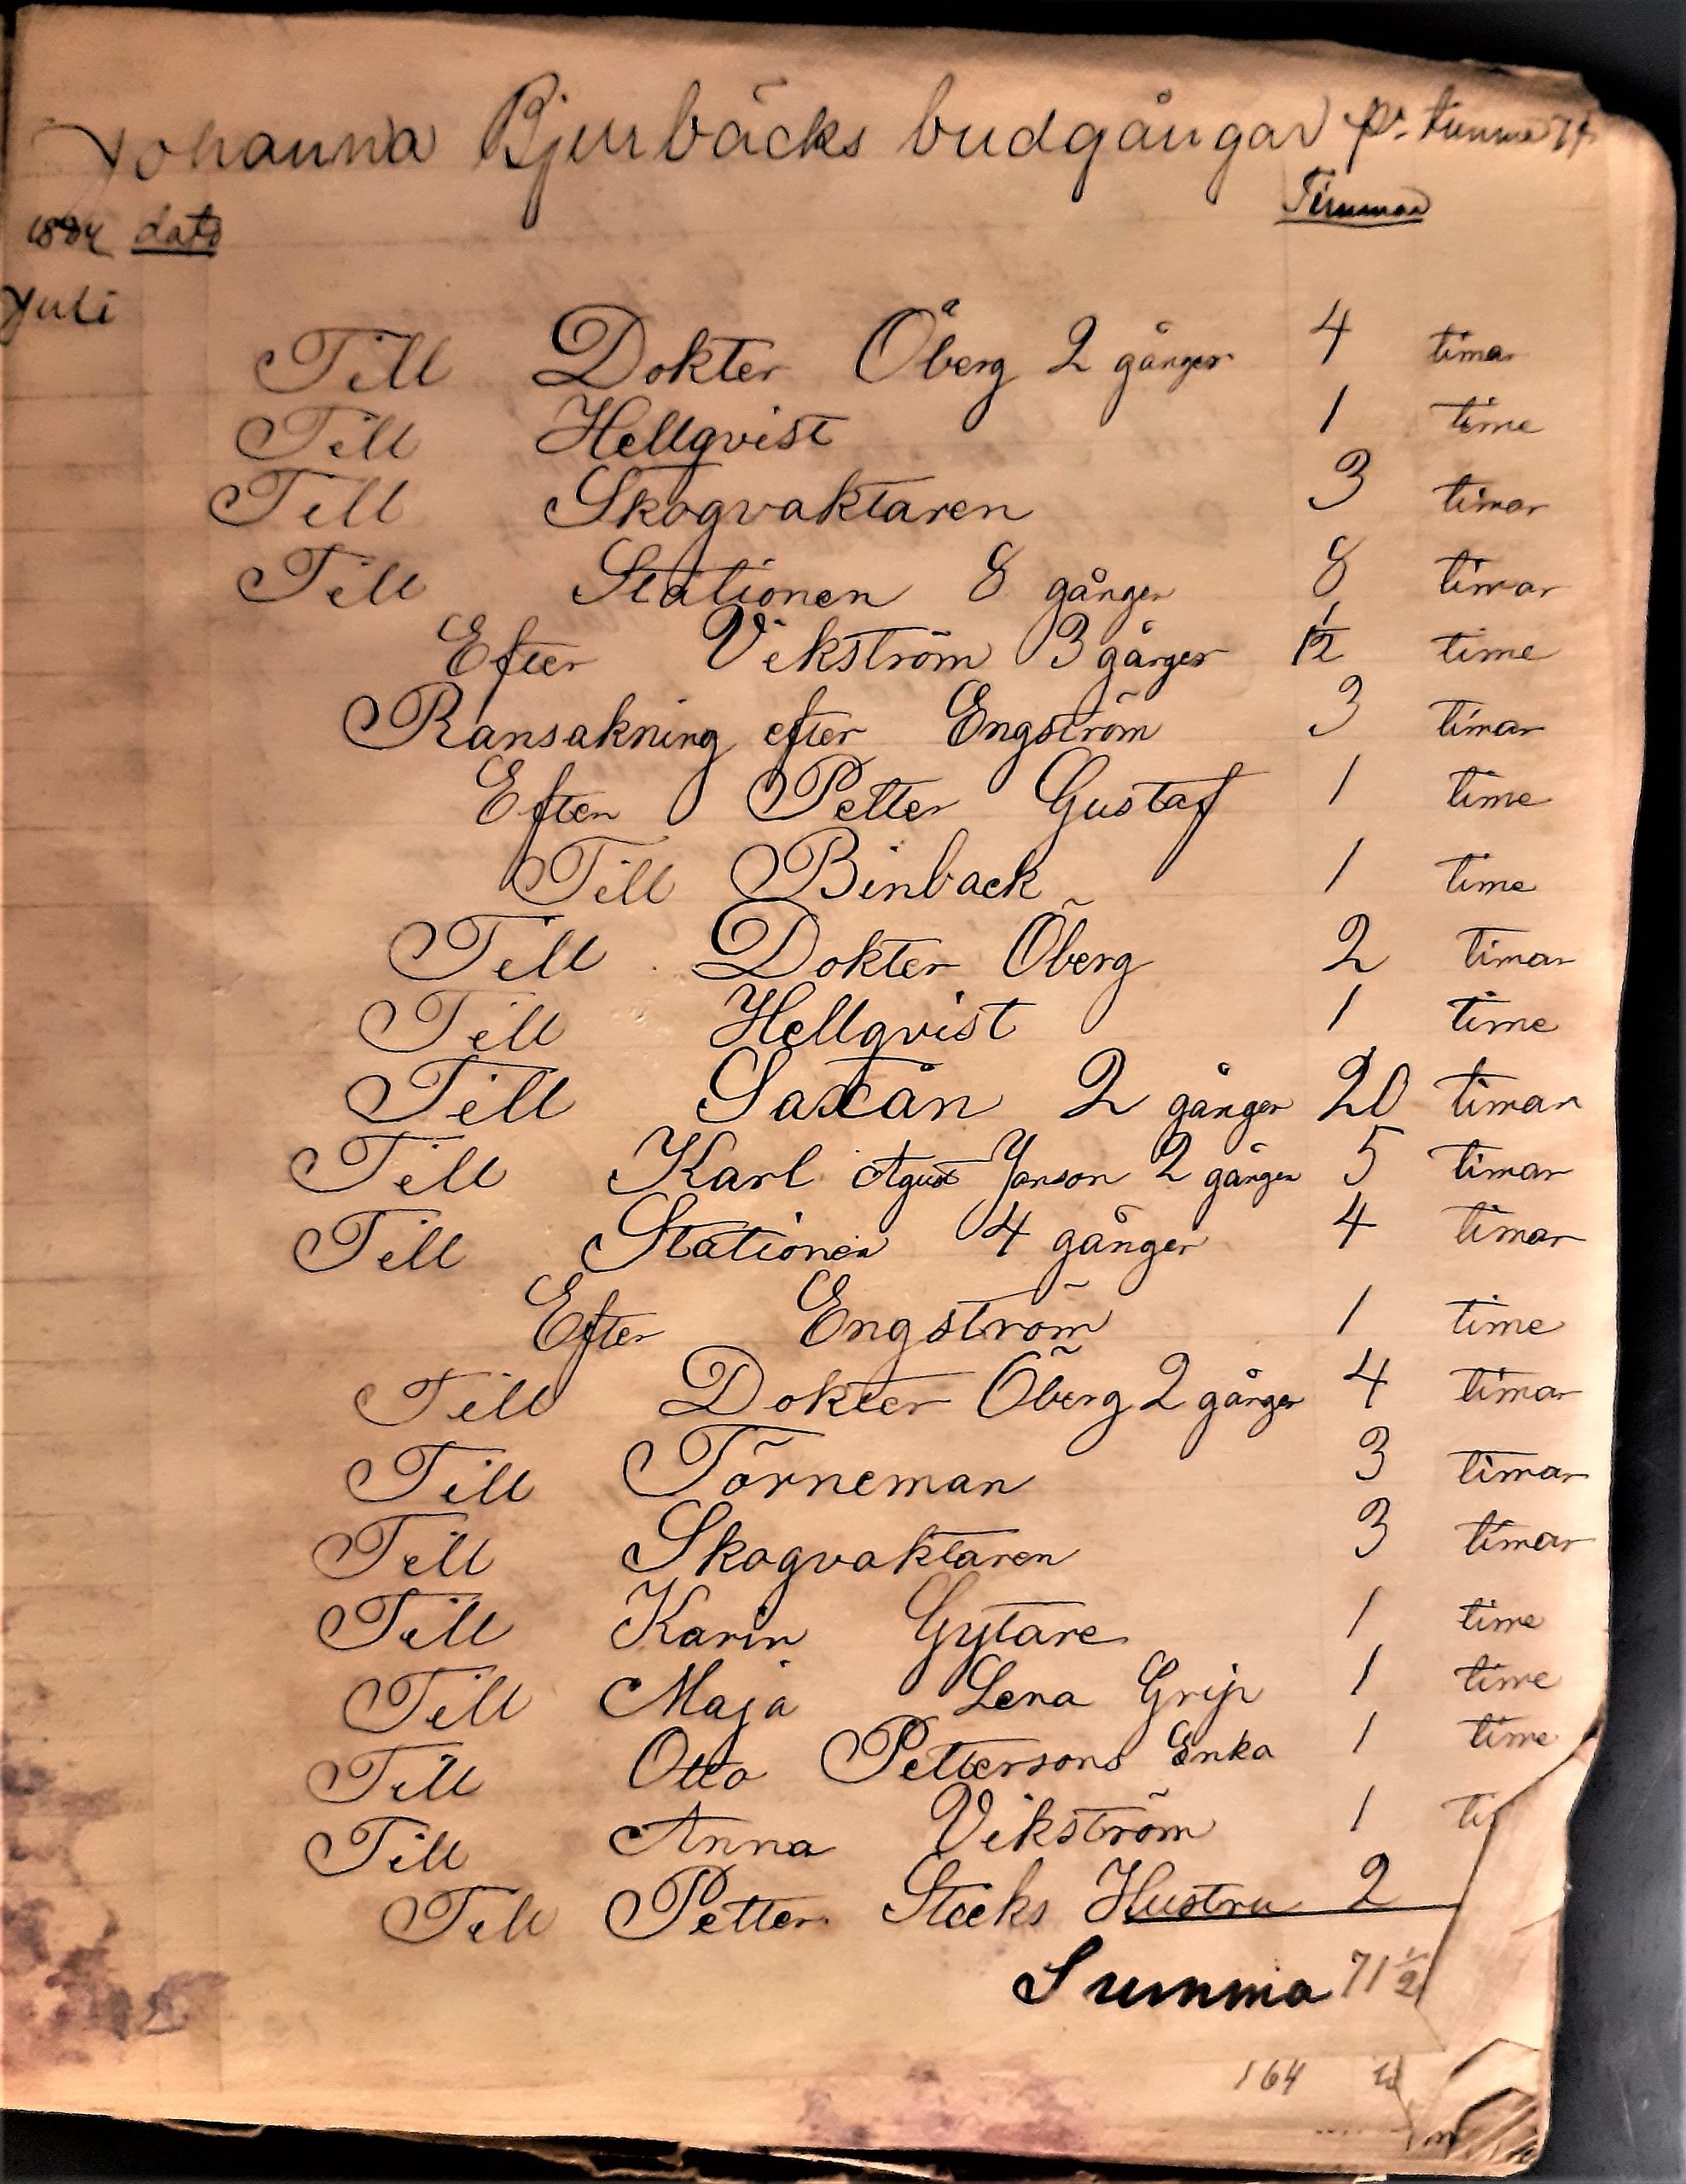 Johanna Bjurbäcks budgångar pr. timma 7f
Timmar
1884 dato
Juli
Till Dokter Öberg 2 gånger 4 timar
Till Hellqvist 1 time
Till Skogvaktaren 3 timar
Till Stationen 8 gånger 8 timar
Efter Vikström 3 gånger 1½ time
Ransakning efter Engström 3 timar
Efter Petter Gustaf 1 time
Till Binback 1 time
Till Dokter Öberg 2 timar
Till Hellqvist 1 time
Till Saxån 2 gånger 20 timar
Till Karl Agust Janson 2 gånger 5 timar
Till Stationen 4 gånger 4 timar
Efter Engström 1 time
Till Dokter Öberg 2 gånger 4 timar
Till Törneman 3 timar
Till Skogvaktaren 3 timar
Till Karin Gytare 1 time
Till Maja Lena Grip 1 time
Till Otto Pettersons Enka 1 time
Till Anna Vikström 1 ti
Till Petter Steeks Hustru 2
Summa 71½
164